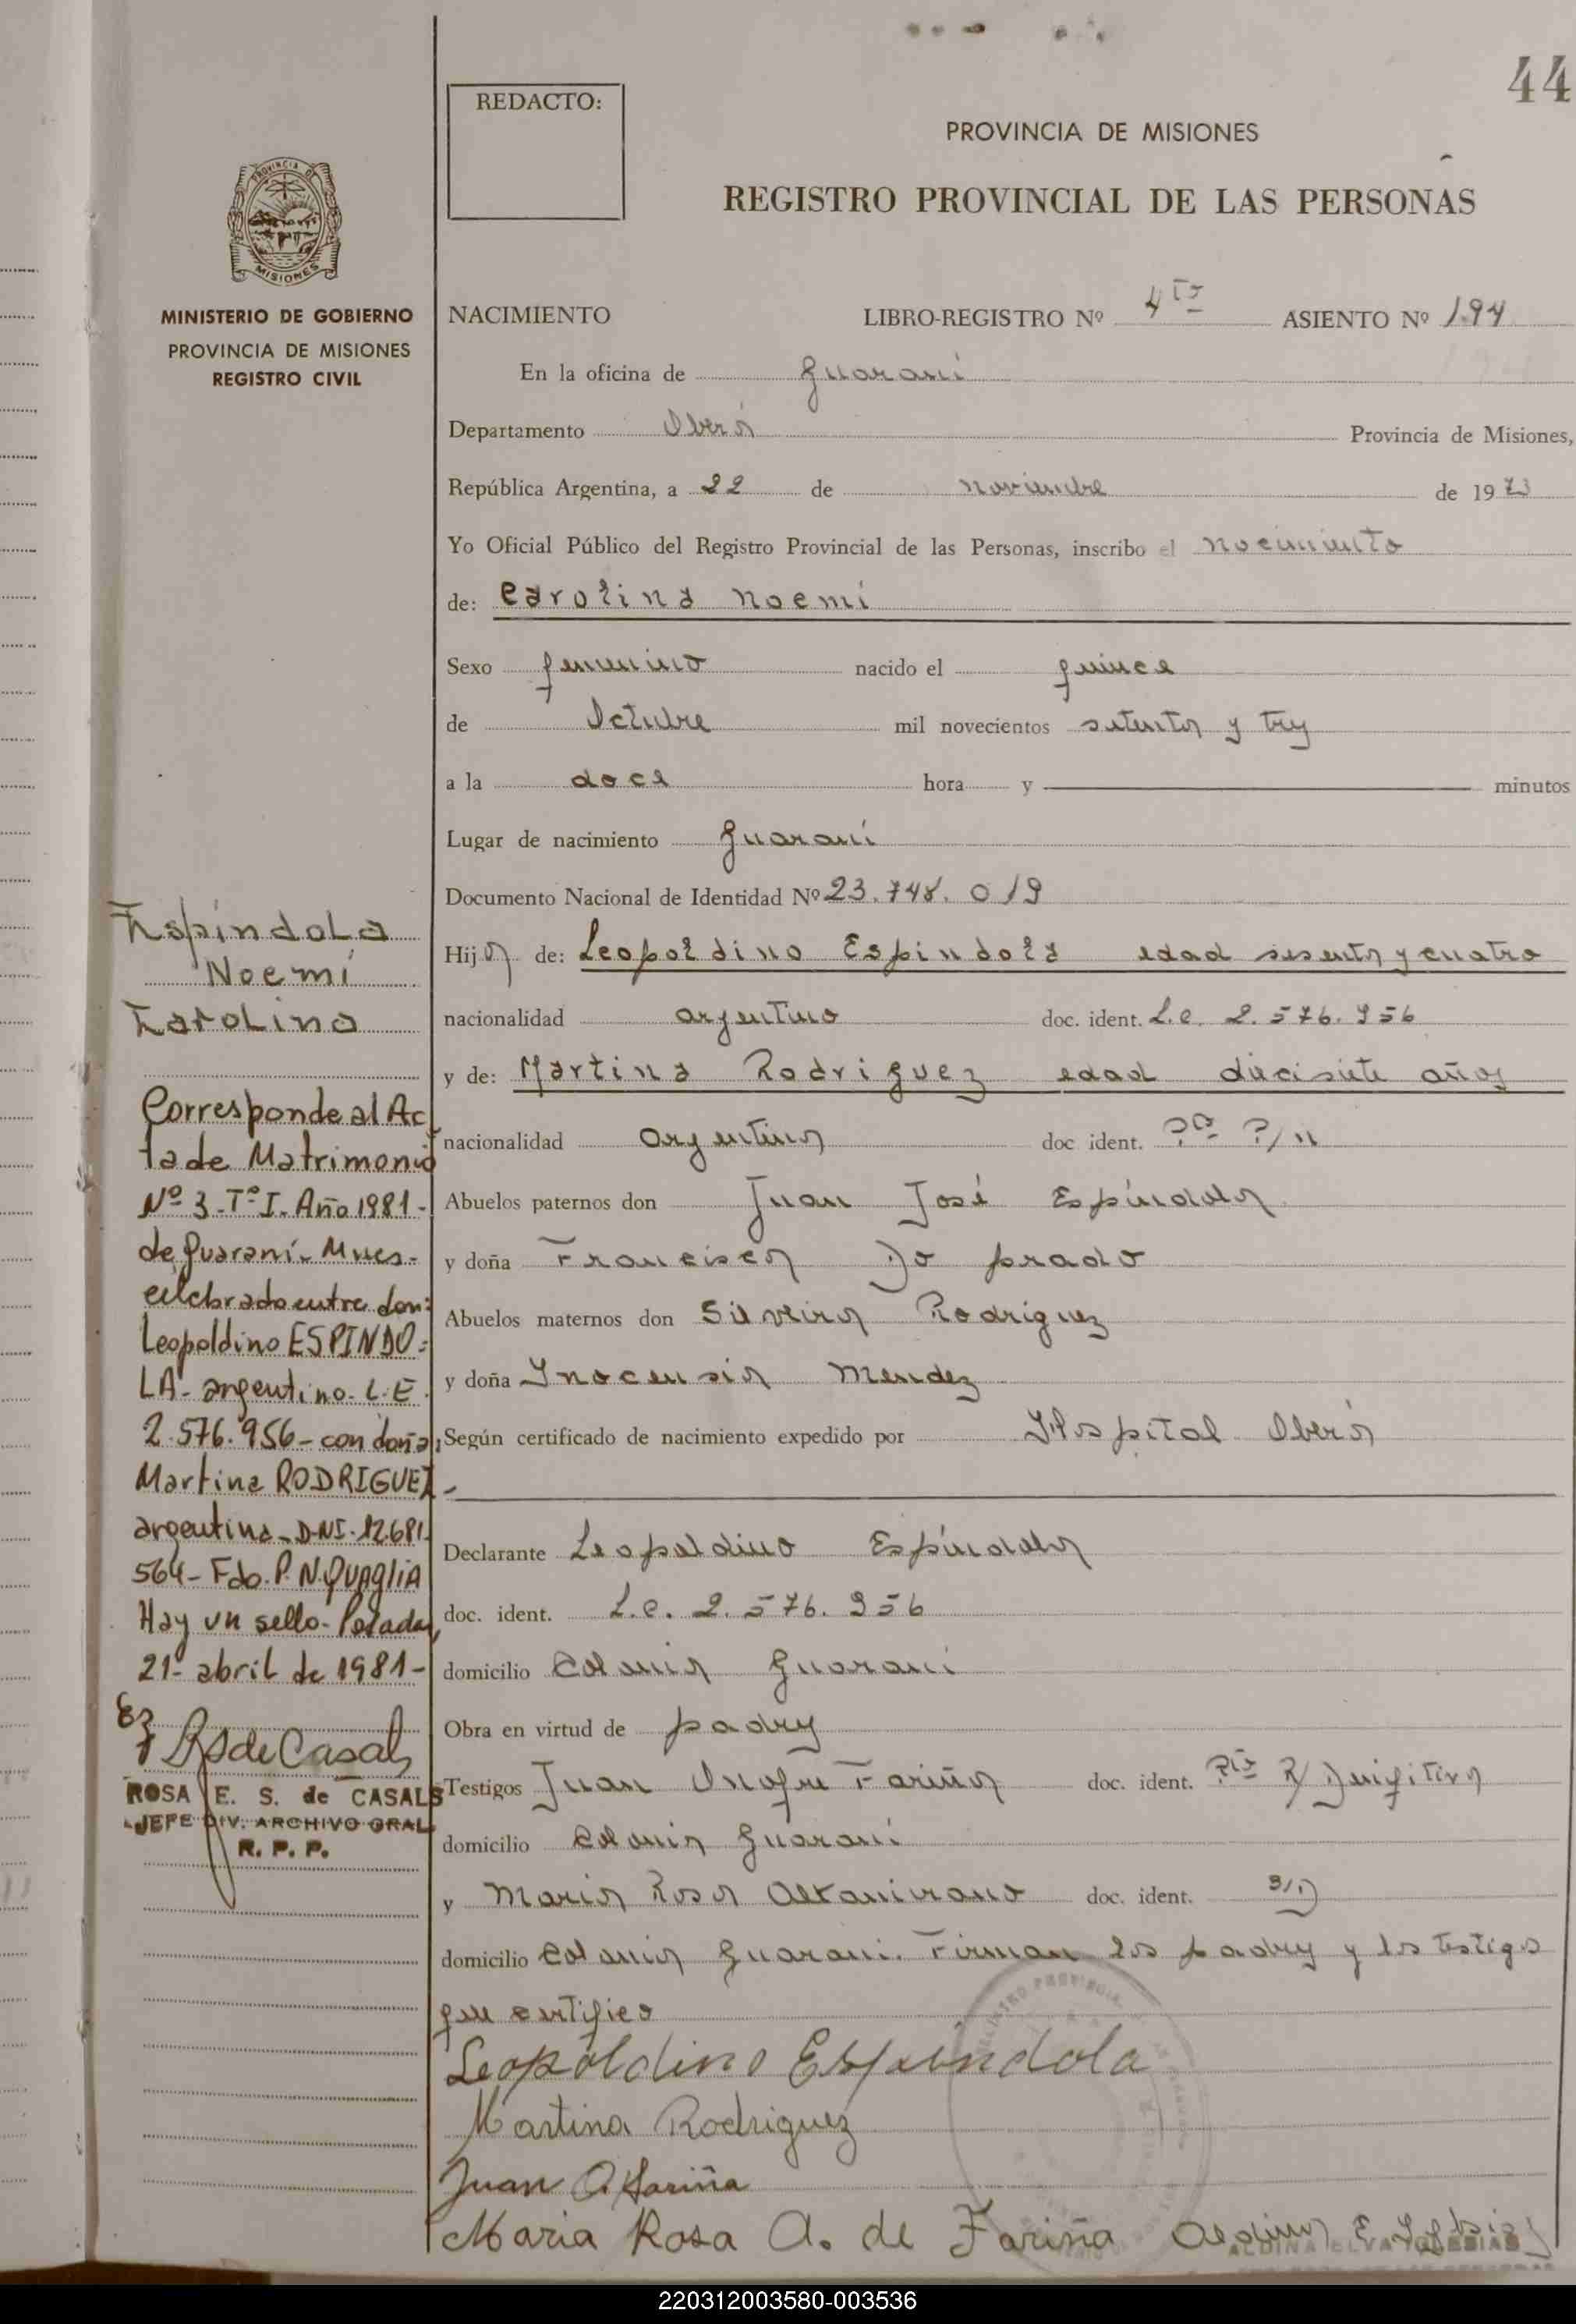 44
REDACTO:
PROVINCIA DE MISIONES
REGISTRO PROVINCIAL DE LAS PERSONAS
PROVINCIA DE
MISIONES
MINISTERIO DE GOBIERNO
PROVINCIA DE MISIONES
REGISTRO CIVIL
NACIMIENTO LIBRO-REGISTRO Nº 4to ASIENTO Nº 194
En la oficina de Guaraní
Departamento Oberá Provincia de Misiones,
República Argentina, a 22 de noviembre de 1973
Yo Oficial Público del Registro Provincial de las Personas, inscribo el nacimiento
de: Carolina Noemí
Sexo femenino nacido el quince
de Octubre mil novecientos setenta y tres
a la doce hora y minutos
Lugar de nacimiento Guaraní
Documento Nacional de Identidad Nº 23.748.019
Hija de: Leopoldino Espindola edad sesenta y cuatro
nacionalidad argentino doc. ident. L.e. 2.576.956
y de: Martina Rodriguez edad diecisiete años
nacionalidad argentina doc ident.
Abuelos paternos don Juan José Espíndola
y doña Francisca Do prado
Abuelos maternos don Silveira Rodriguez
y doña Inocensia Mendez
Según certificado de nacimiento expedido por Hospital Oberá
Declarante Leopoldino Espíndola
doc. ident. L.e. 2.576.956
domicilio Colonia Guaraní
Obra en virtud de padres
Testigos Juan Onofre Fariña doc. ident.
domicilio Colonia Guaraní
y Maria Rosa Altamirano doc. ident. S/D
domicilio Colonia Guaraní. Firman los padres y los testigos
que certifico
Leopoldino Espindola
Martina Rodriguez
Juan O. Fariña
Maria Rosa A. de Fariña
Espíndola
Noemí
Karolina
Corresponde al Ac
ta de Matrimonio
Nº 3-Tº I. Año 1981-
de Guaraní-Mnes-
celebrado entre don:
Leopoldino ESPINDO=
LA- argentino- L.E.
2.576.956- con doña,
Martina RODRIGUEZ-
argentina-D.N.I-12.681.
564- Fdo. P.N.QUAGLIA
Hay un sello- Posadas,
21- abril de 1981-
RSdeCasals
ROSA E. S. de CASALS
JEFE DIV. ARCHIVO GRAL
R. P. P.
220312003580-003536